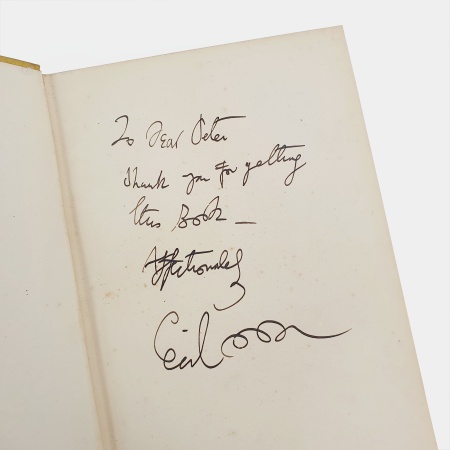 To Dear Peter
Thank you for getting
this Book —
Affectionately
Cecil